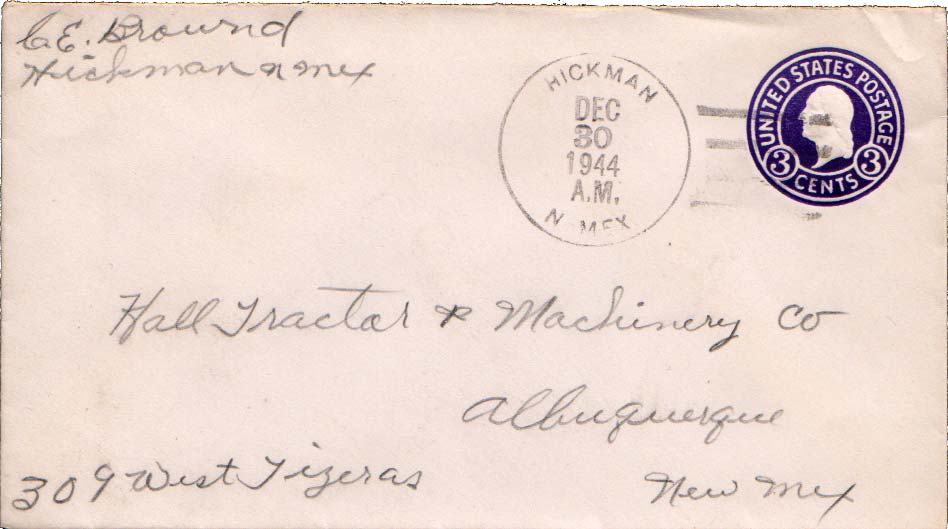 C.E. Brownd
Hickman n mex
HICKMAN
DEC
30
1944
A.M.
N. MEX
UNITED STATES POSTAGE
3 CENTS 3
Hall Tractor & Machinery Co
Albuquerque
309 West Tigeras
New Mex